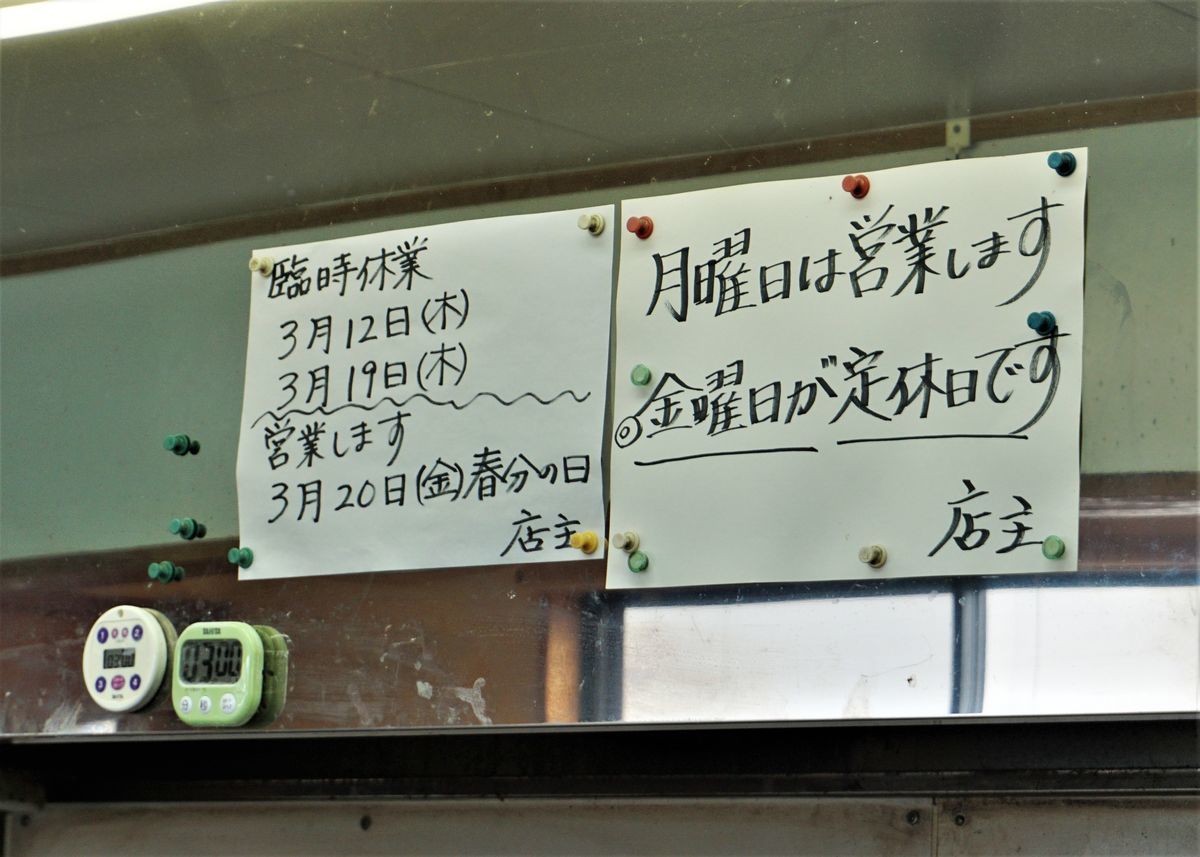 臨時休業
3月12日(木)
3月19日(木)
営業します
3月20日(金)春分の日
店主
月曜日は営業します
◎金曜日が定休日です
店主
TANITA
03:00
分 秒
1 2
3 4